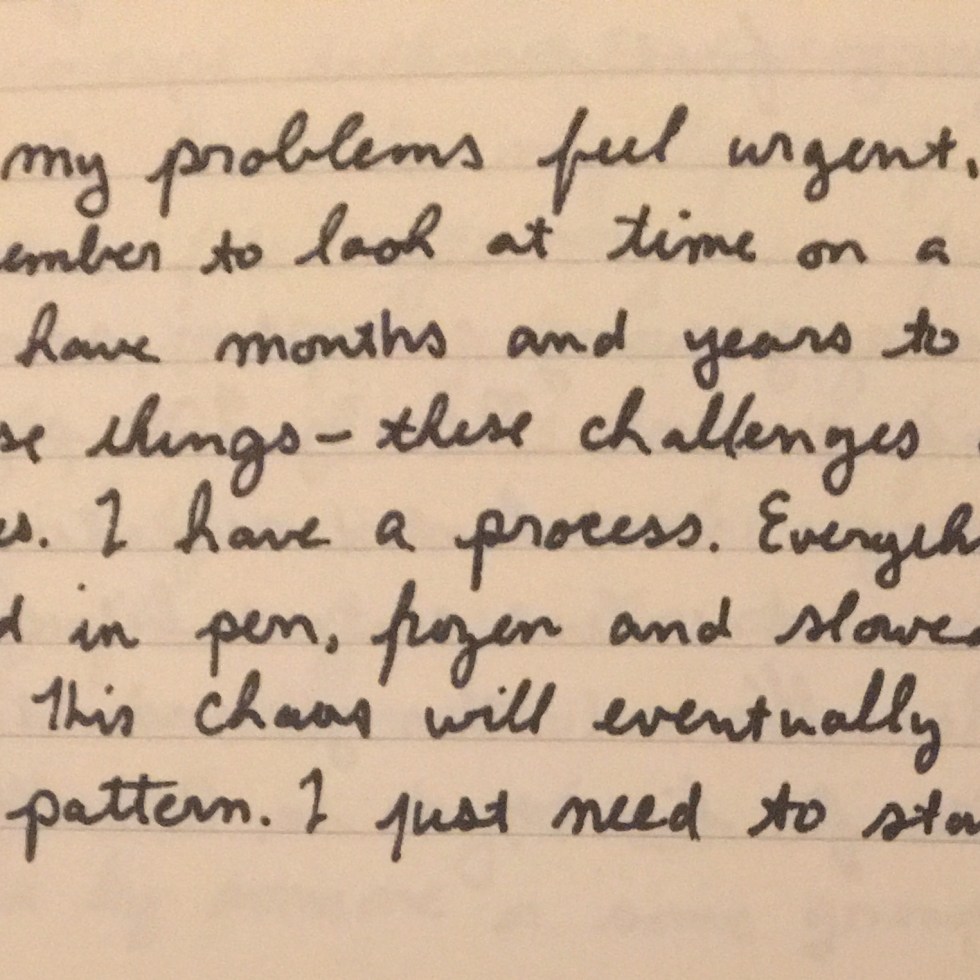 my problems feel urgent.
ember to look at time on a
have months and years to
se things - these challenges
es. I have a process. Everyth
d in pen, frozen and slowe
This chaos will eventually
pattern. I just need to sta